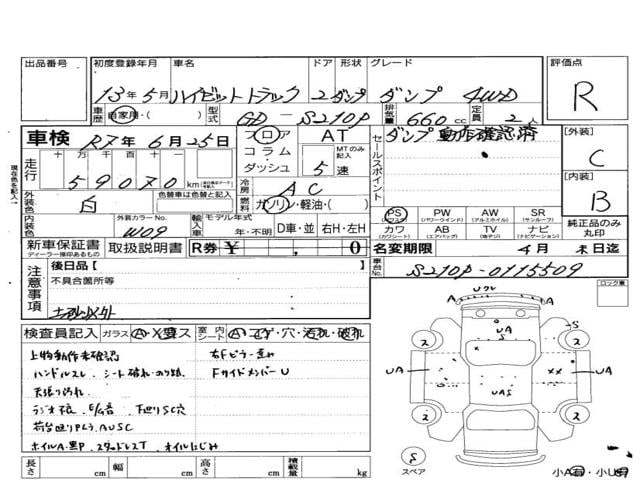 出品番号 初度登録年月 車名 ドア 形状 グレード 評価点
13年5月 ハイゼットトラック 2 ダンプ ダンプ 4WD R
車歴 自家用・( ) 型式 GD-S210P 排気量 660cc 定員 2人
車検 R7年6月25日 フロア コラム・ダッシュ AT MTのみ記入 5速
セールスポイント ダンプ動作確認済
[外装] C
走行 十万 万 千 百 十 一 59070 km
冷房 AC
[内装] B
外装色 白 色替車は色替と記入 燃料 ガソリン・軽油・( )
PS (パワステ) PW (パワーウインド) AW (アルミホイル) SR (サンルーフ)
カワ (カワシート) AB (エアバッグ) TV (地デジ) ナビ (ナビゲーション)
純正品のみ丸印
内装色 外装カラーNo. W09 輸入車 モデル年式 年・不明 D車・並 右H・左H
新車保証書 ディーラー捺印あるもの 取扱説明書 R券 ¥ , 0
名変期限 4月 末日迄
注意事項 後日品[ ]
不具合箇所等
車台No. S210P-0115509
現在色を記入→
ロック数
検査員記入 ガラス A・X・要ス 室内シート A・コゲ・穴・汚れ・破れ
上物動作未確認 右Fピラー歪み
ハンドルスレ シート破れ・のり跡 FサイドメンバーU
天張り汚れ
ラジオ不良 下廻りSC穴
荷台廻り AUSC
ホイルA・黒P スタッドレスT オイルにじみ
長さ cm 幅 cm 高さ cm 積載量 kg
A A
UA
S
2 2
UA UA
UA5
2 2
S
スペア
小A有・小U有